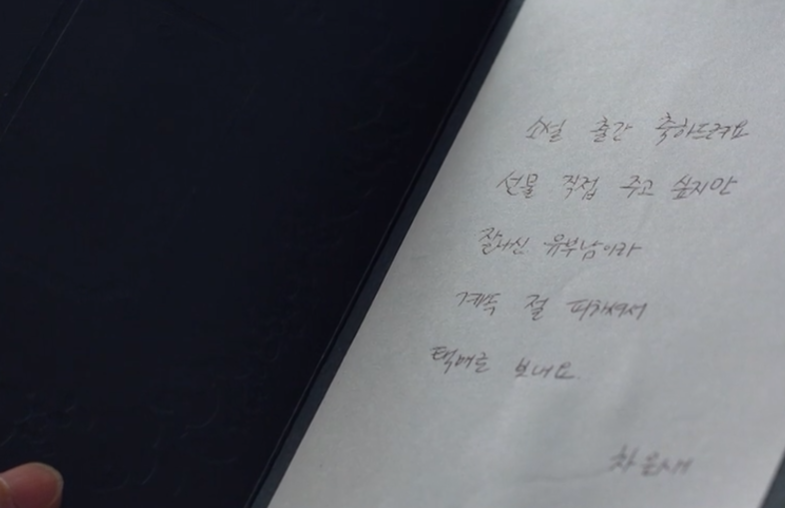 소설 출간 축하드려요
선물 직접 주고 싶지만
잘나신 유부남이라
계속 절 피하셔서
택배로 보내요.
차은새